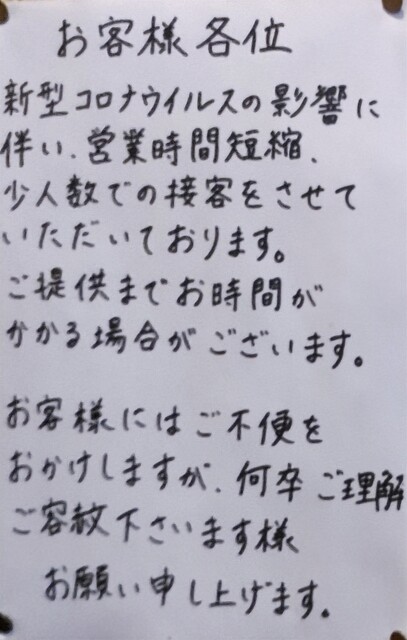 お客様各位
新型コロナウイルスの影響に
伴い、営業時間短縮、
少人数での接客をさせて
いただいております。
ご提供までお時間が
かかる場合がございます。
お客様にはご不便を
おかけしますが、何卒ご理解
ご容赦下さいます様
お願い申し上げます。